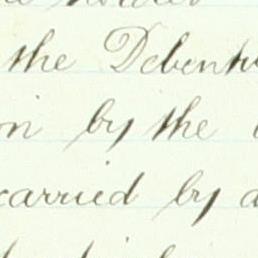 the Debentu
on by the
carried by a